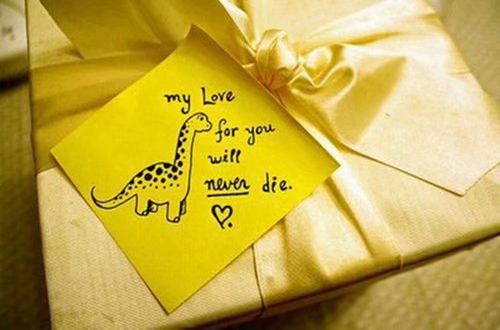 my Love
for you
will
never die.